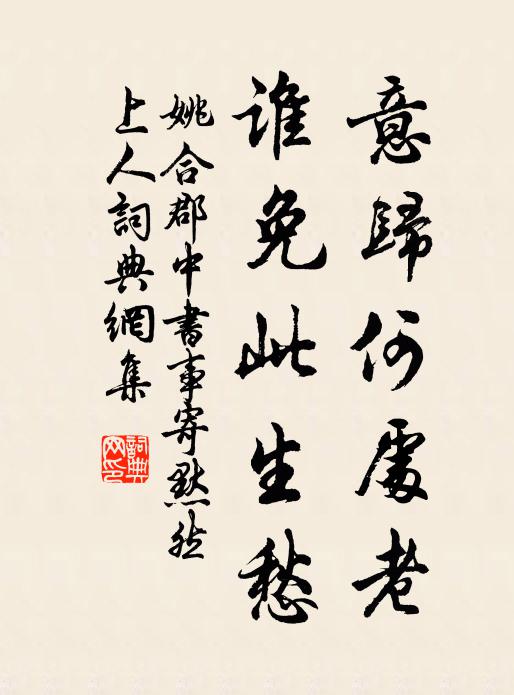 意歸何處老
誰免此生愁
姚合郡中書事寄默然
上人詞典網集
詞典网印